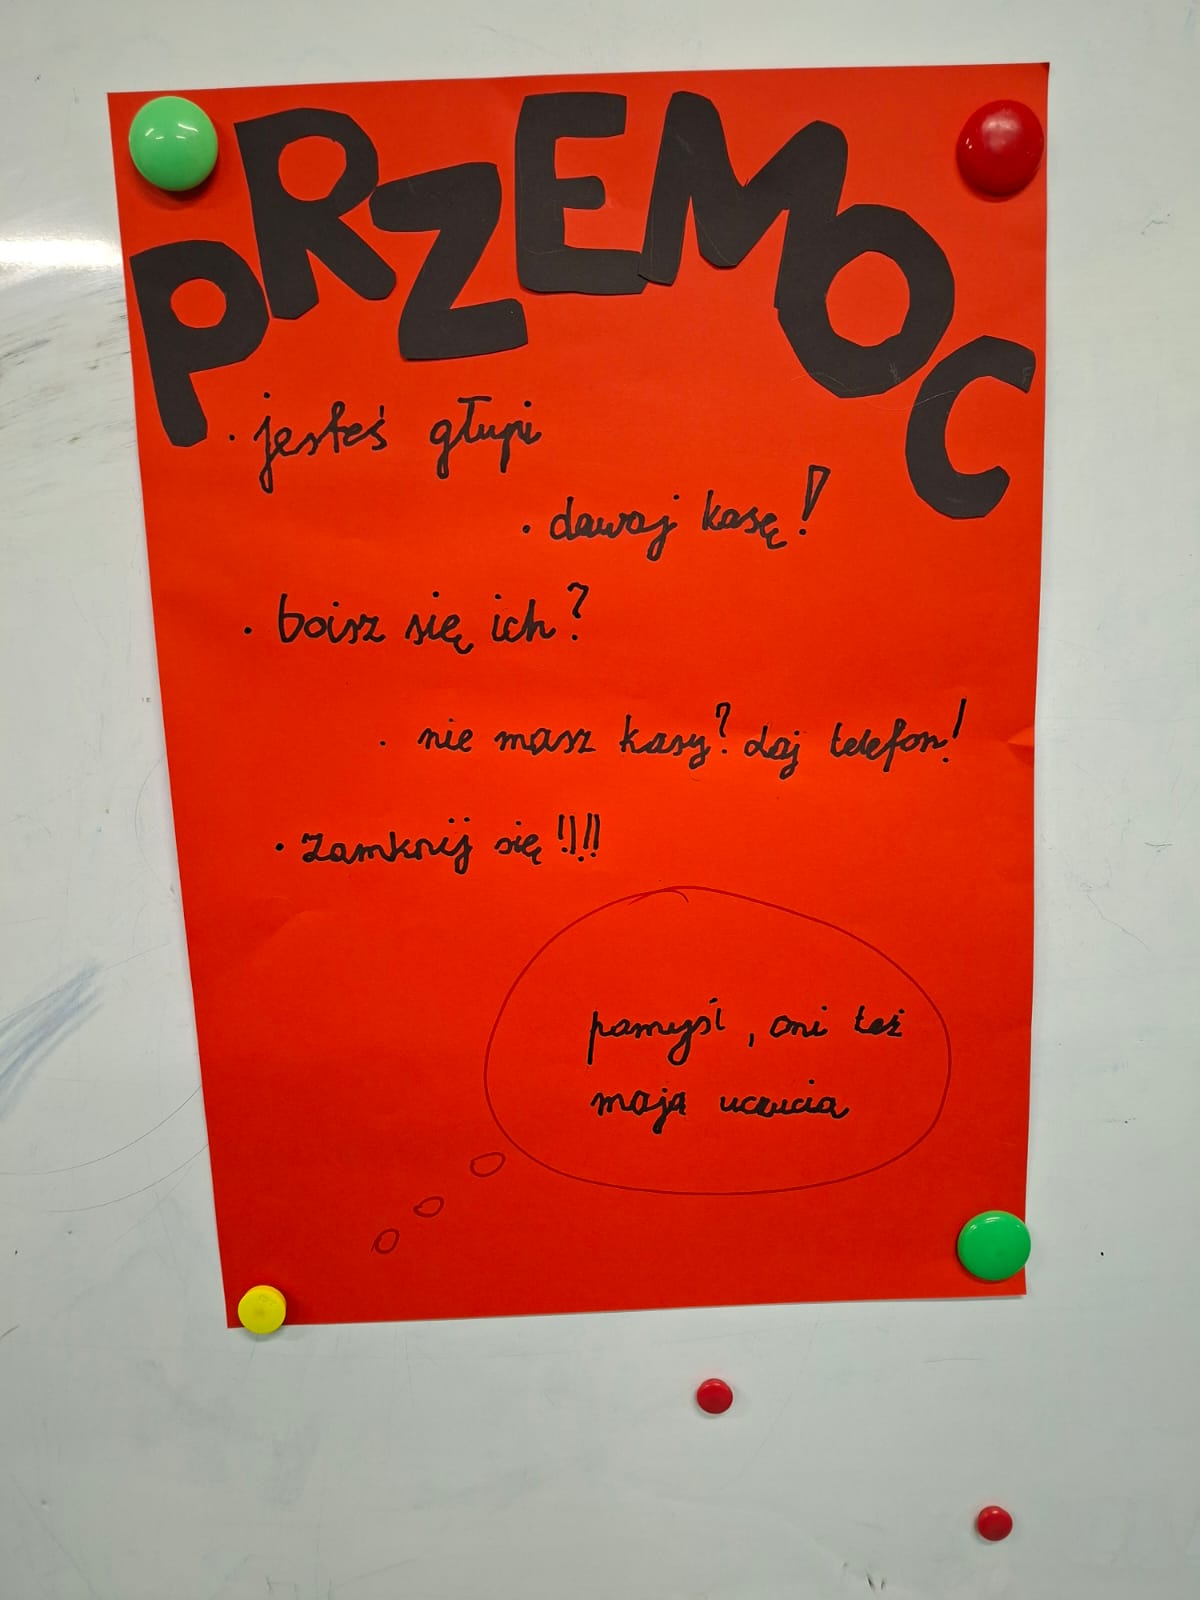 PRZEMOC
· jesteś głupi
· dawaj kasę!
· boisz się ich?
· nie masz kasy? daj telefon!
· Zamknij się!!!!
pomyśl, oni też
mają uczucia